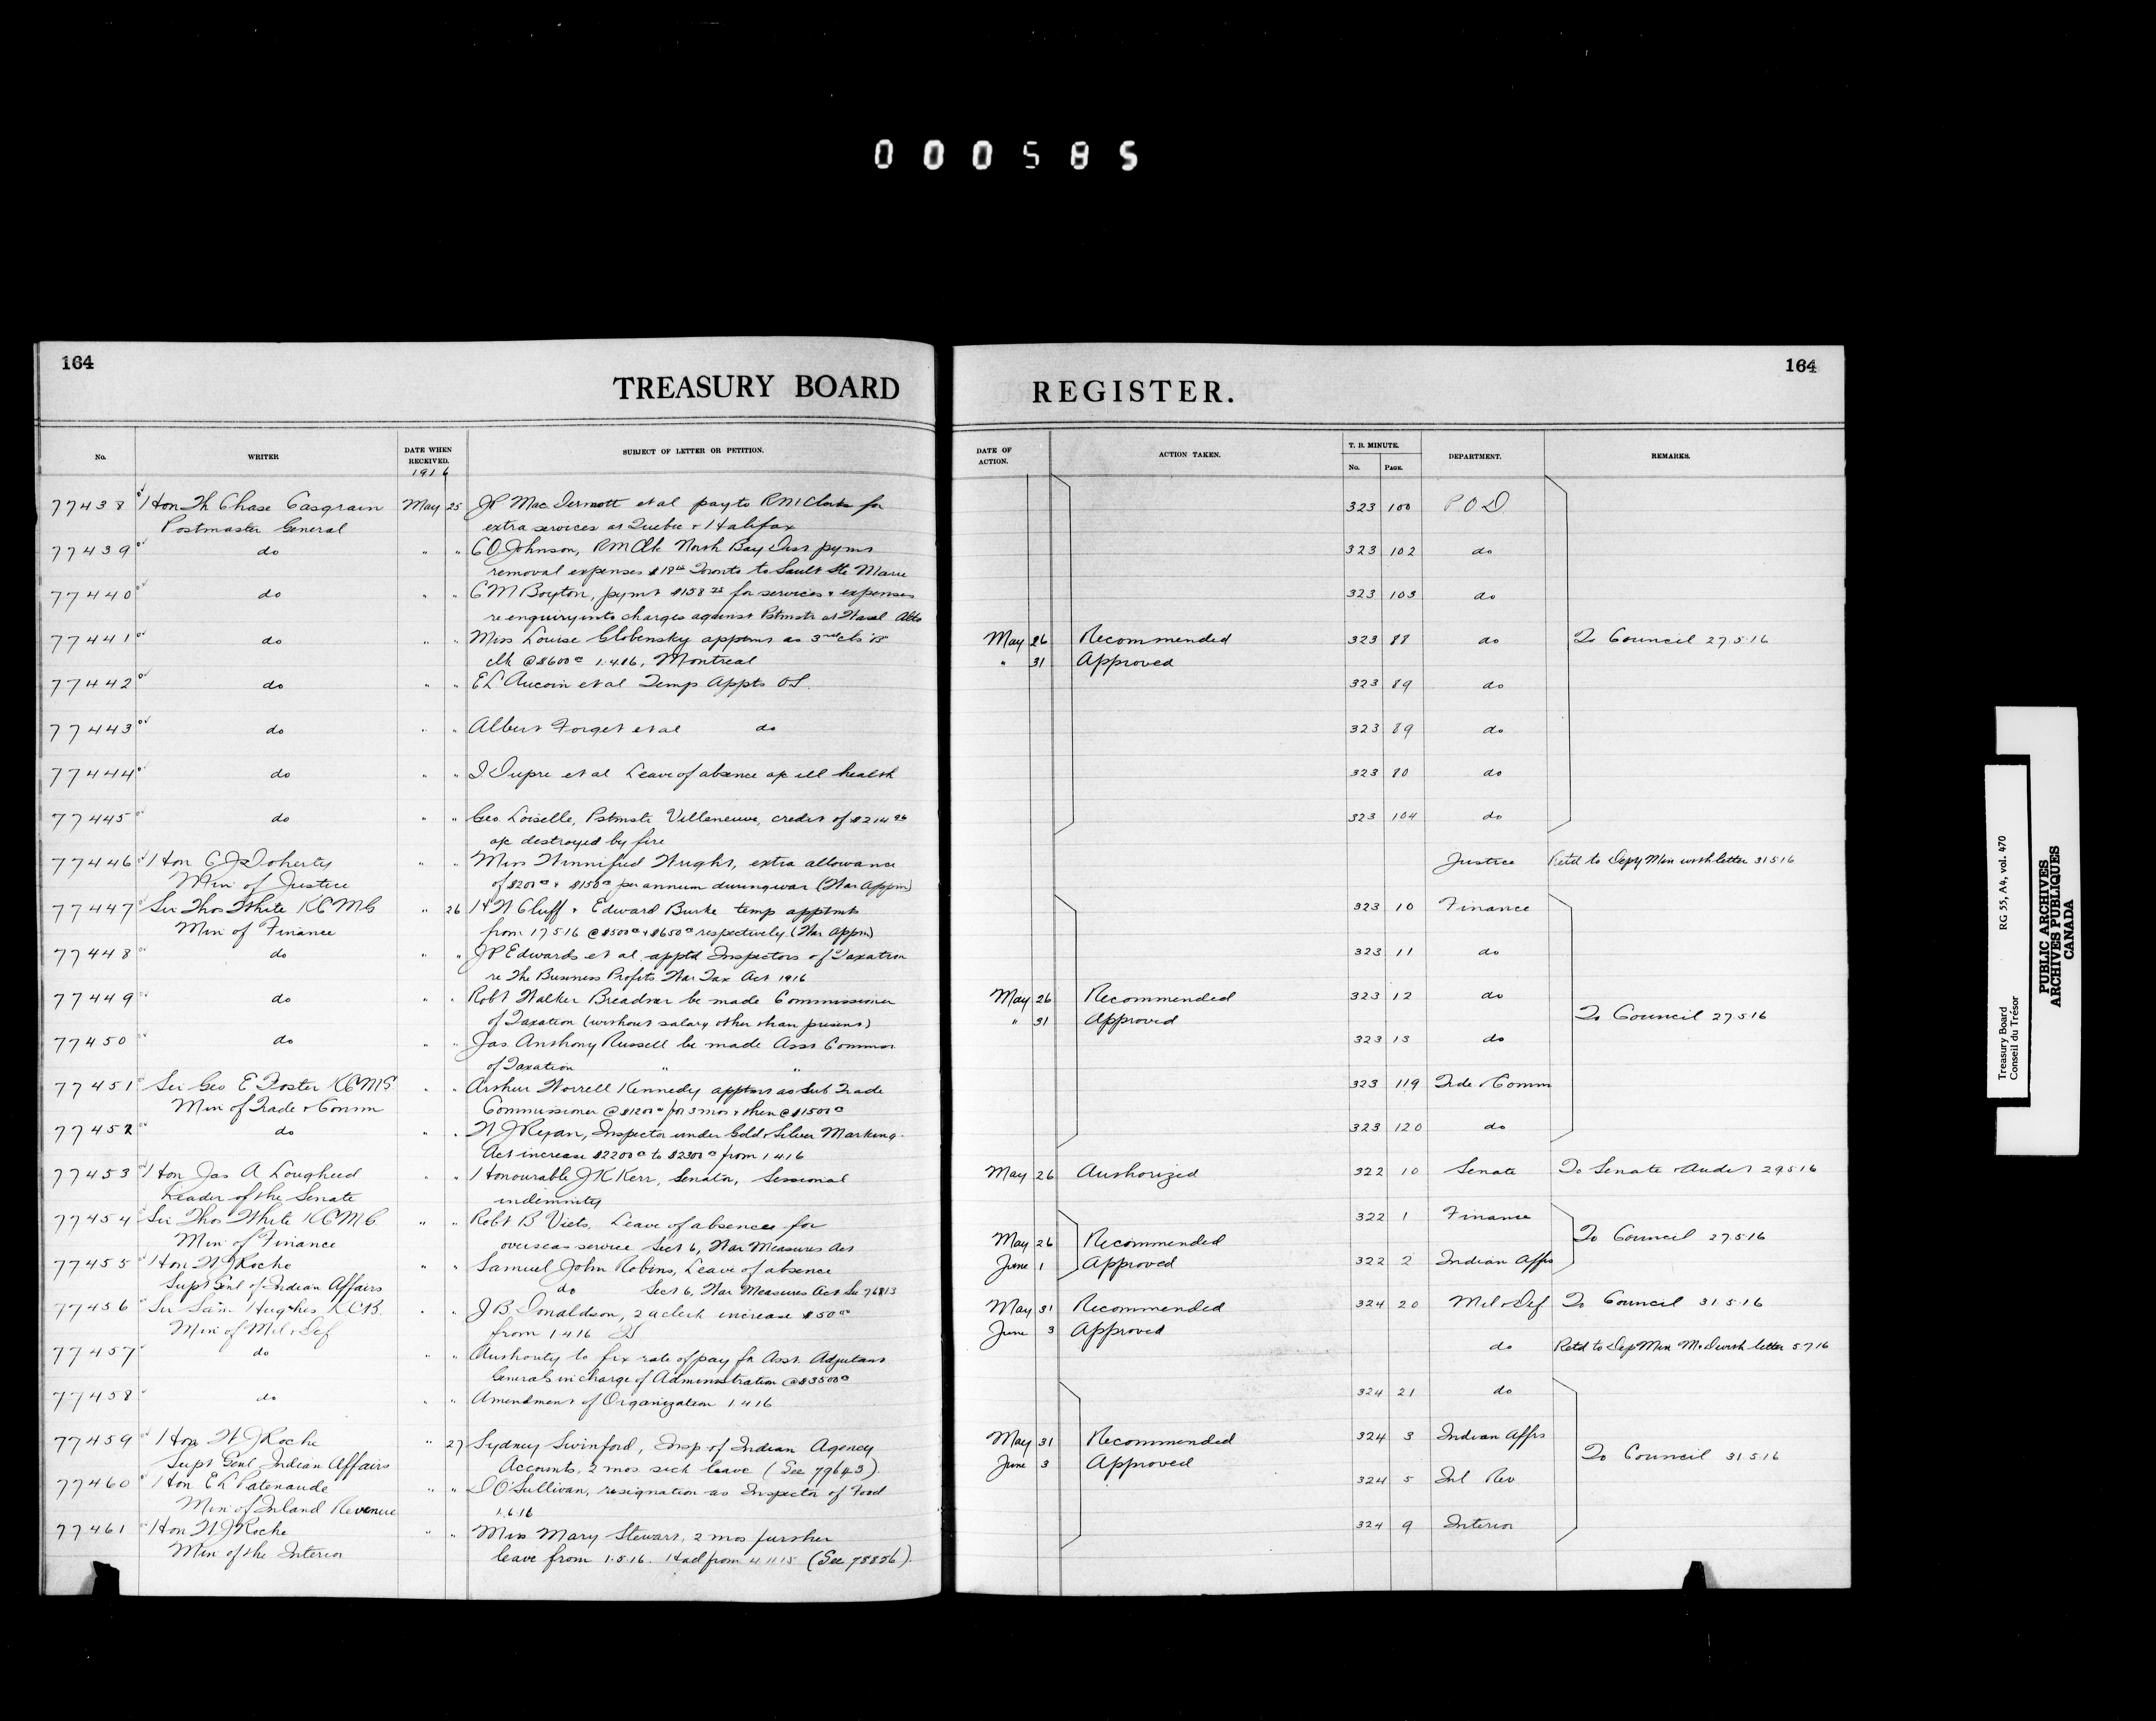 000585
164
TREASURY BOARD
No.
WRITER
DATE WHEN RECEIVED.
1916
SUBJECT OF LETTER OR PETITION.
77438 Hon Th Chase Casgrain May 25 JP MacDermott et al pay to RM Clerks for
Postmaster General extra services at Quebec & Halifax
77439 do " " C O Johnson, RM Clk North Bay Dist pymt
removal expenses Toronto to Sault Ste Marie
77440 do " " C M Boyton, pymt for services & expenses
re enquiry into charges against Pstmstr at Alta
77441 do " " Miss Louise Globensky apptmt as 3rd cls "B"
clk @ $600 1.4.16, Montreal
77442 do " " E L Aucoin et al Temp Appts OS.
77443 do " " Albert Forget et al do
77444 do " " Dupre et al Leave of absence a/c ill health
77445 do " " Geo. Loiselle, Pstmstr Villeneuve, credit of $214
a/c destroyed by fire
77446 Hon C J Doherty " " Miss Winnifred Wright, extra allowance
Min of Justice of $200 & $150 per annum during war (War Appn)
77447 Sir Thos White KCMG " 26 H W Cluff & Edward Burke temp apptmts
Min of Finance from 17 5 16 @ $500 & $650 respectively (War Appn)
77448 do " " J P Edwards et al apptd Inspectors of Taxation
re The Business Profits War Tax Act 1916
77449 do " " Robt Walker Breadner be made Commissioner
of Taxation (without salary other than present)
77450 do " " Jas Anthony Russell be made Asst Commr
of Taxation " "
77451 Sir Geo E Foster KCMG " " Arthur Worrell Kennedy apptmt as Sub Trade
Min of Trade & Comm Commissioner @ $1200 for 3 mos & then @ $1500
77452 do " " W J Ryan, Inspector under Gold & Silver Marking
Act increase $2200 to $2300 from 1 4 16
77453 Hon Jas A Lougheed " " Honourable J K Kerr, Senator, Sessional
Leader of the Senate indemnity
77454 Sir Thos White KCMG " " Robt B Viets, Leave of absence for
Min of Finance overseas service Sect 6, War Measures Act
77455 Hon W J Roche " " Samuel John Robins, Leave of absence
Supt Genl of Indian Affairs do Sect 6, War Measures Act See 76813
77456 Sir Sam Hughes KCB. " " J B Donaldson, 2a clerk increase $50
Min of Mil & Def from 1 4 16
77457 do " " Authority to fix rate of pay for Asst. Adjutant
Generals in charge of Administration @ $3500
77458 do " " Amendment of Organization 1 4 16
77459 Hon W J Roche " 27 Sydney Swinford, Insp of Indian Agency
Supt Genl Indian Affairs Accounts, 2 mos sick leave (See 79643)
77460 Hon E L Patenaude " " D O'Sullivan, resignation as Inspector of Food
Min of Inland Revenue 1.6.16
77461 Hon W J Roche " " Miss Mary Stewart, 2 mos further
Min of the Interior leave from 1.5.16. Had from 4 11 15 (See 75856).
164
REGISTER.
DATE OF ACTION.
ACTION TAKEN.
T. B. MINUTE.
No.
PAGE.
DEPARTMENT.
REMARKS.
323 100 P O D
323 102 do
323 103 do
May 26 Recommended 323 88 do To Council 27.5.16
" 31 Approved
323 89 do
323 89 do
323 80 do
323 104 do
Justice Retd to Depy Min with letter 31 5 16
323 10 Finance
323 11 do
May 26 Recommended 323 12 do
" 31 Approved To Council 27 5 16
323 13 do
323 119 Tde & Comm
323 120 do
May 26 Authorized 322 10 Senate To Senate & Audit 29 5 16
322 1 Finance
May 26 Recommended To Council 27 5 16
June 1 Approved 322 2 Indian Affrs
May 31 Recommended 324 20 Mil & Def To Council 31 5 16
June 3 Approved
do Retd to Dep Min M & D with letter 5 7 16
324 21 do
May 31 Recommended 324 3 Indian Affrs
June 3 Approved To Council 31 5 16
324 5 Inl Rev
324 9 Interior
Treasury Board RG 55, A4, vol. 470
Conseil du Trésor
PUBLIC ARCHIVES
ARCHIVES PUBLIQUES
CANADA